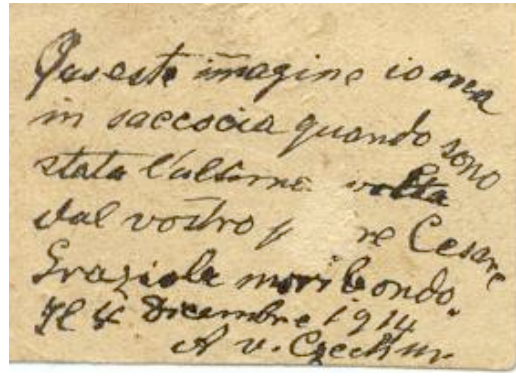 Queste imagine io avea
in saccocia quando sono
stata l'ultima volta
dal vostro re Cesare
Graziola moribondo.
Il 4 Dicembre 1914
A v.